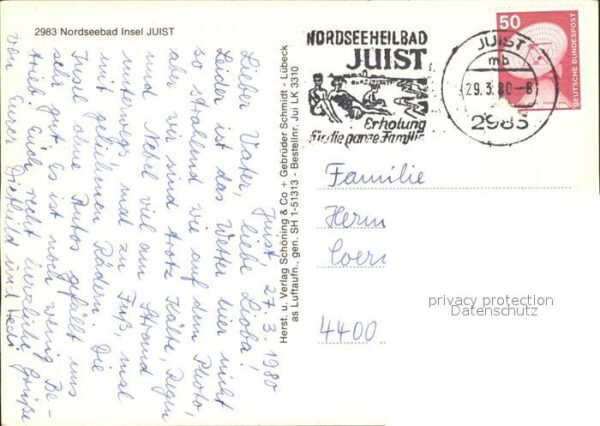 2983 Nordseebad Insel JUIST
Juist, 27.3.1980
Lieber Vater, liebe Lioba!
Leider ist das Wetter hier nicht
so strahlend wie auf dem Photo,
aber wir sind trotz Kälte, Regen
und Nebel viel am Strand
unterwegs, mal zu Fuß, mal
mit geliehenen Rädern. Die
Insel ohne Autos gefällt uns
sehr gut, es ist noch wenig Be-
trieb. Euch recht herzliche Grüße
von Eurer Diethild und
Herst. u. Verlag Schöning & Co + Gebrüder Schmidt - Lübeck
as Luftaufn., gen. SH 1-51313 - Bestellnr. Jui LK 3310
NORDSEEHEILBAD
JUIST
Erholung
für die ganze Familie
JUIST
mb
29.3.80-8
2983
50
DEUTSCHE BUNDESPOST
Familie
Herm
Coer
4400
privacy protection
Datenschutz